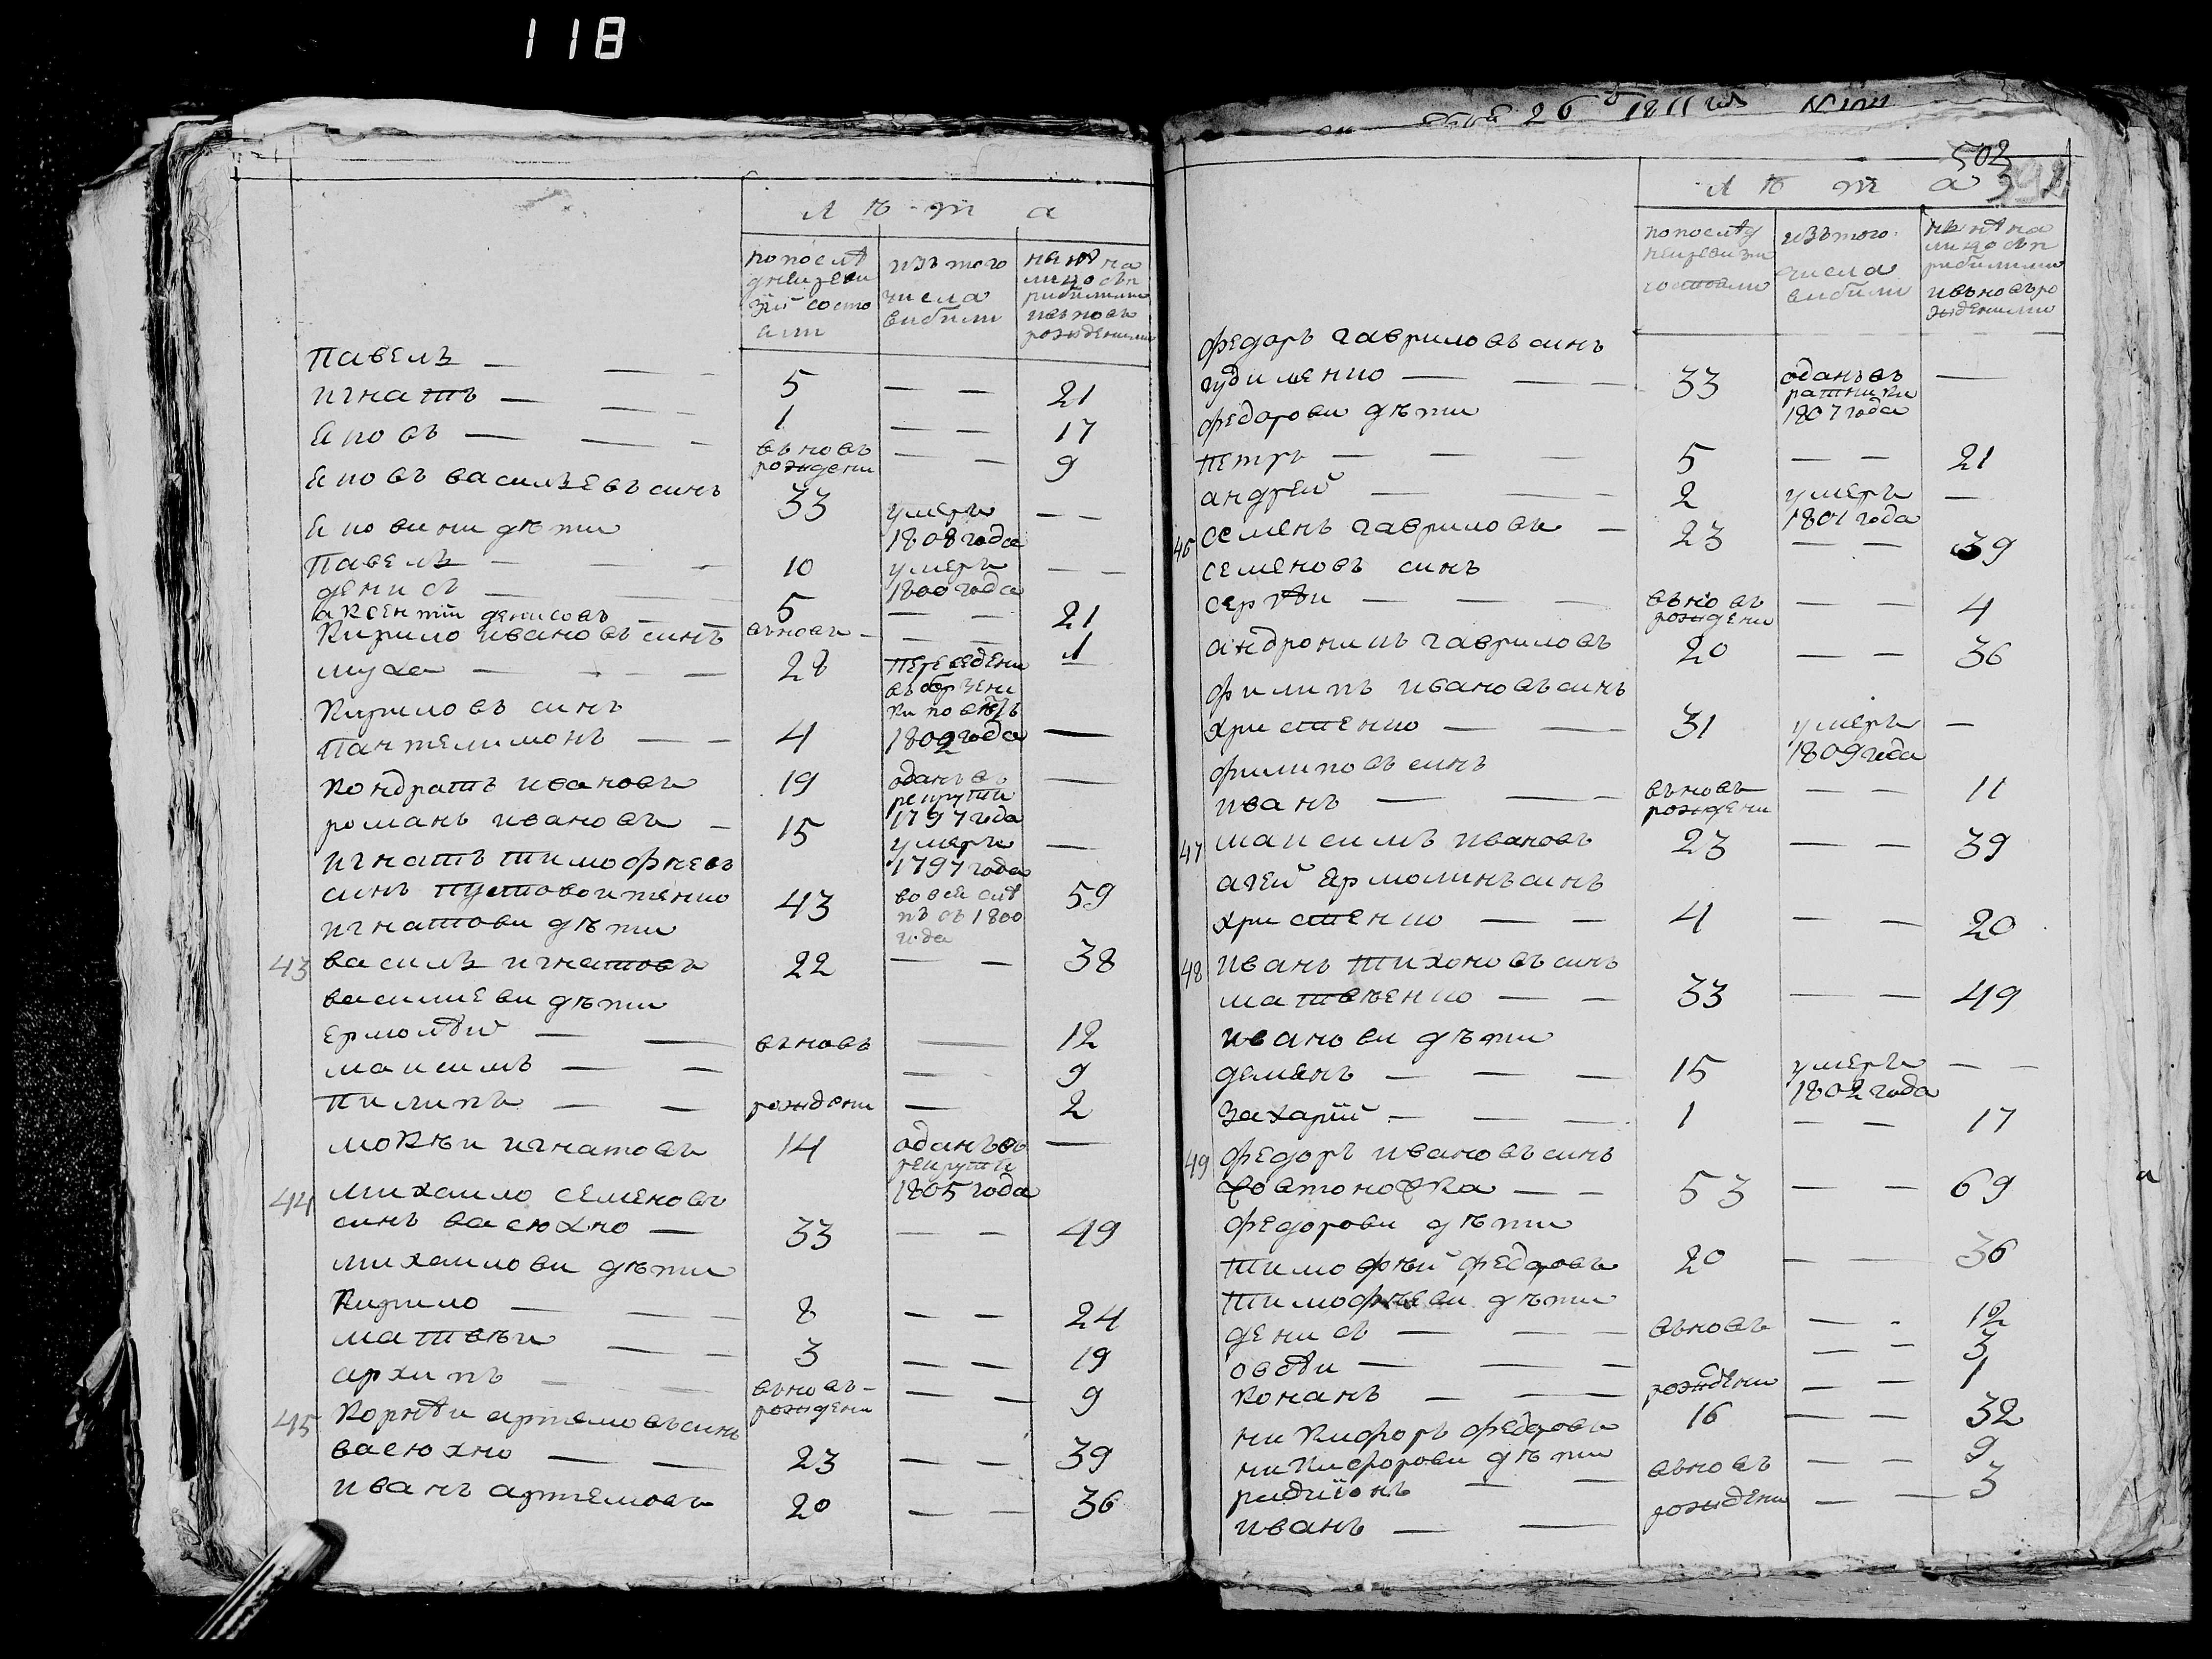 118
лѣта
попослѣ
днеи реви
зіи состо
яли
изъ того
числа
вибили
нынѣ на
лицо съ п
рибилими
ивьновь
рожденими
павелъ — 5 — — 21
игнатъ — 1 — — 17
яковъ — вьновь рождени — — 9
яковъ василъевъ синъ 33 умерь 1808 года — —
яковини дѣти
павелъ — 10 умерь 1800 года — —
денисъ — 5 — — 21
аксентіи денисовъ вьновь — — — 1
кирило ивановъ синъ
муха — 28 переведени въ 1802 года —
кириловъ синъ
пантелимонъ — — 4 —
кондратъ ивановъ 19 оданъ въ рекрути 1797 года —
романъ ивановъ — 15 умерь 1797 года —
игнатъ тимофѣевъ
синъ пустовоитенко 43 59
игнатови дѣти
43 василъ игнатовъ 22 — — 38
василиеви дѣти
ермолѣи — — вьновь — 12
максимъ — — — 9
пилипъ — — рождени — 2
мокѣи игнатовъ 14 оданъ въ рекрути 1805 года —
44 михаило семеновъ
синъ васюхно — 33 — — 49
михаилови дѣти
кирило — — 8 — — 24
матвѣи — — 3 — — 19
архипъ — — вьновь рождени — — 9
45 корнѣи артемовъ синъ
васюхно — — 23 — — 39
иванъ артемовъ 20 — — 36
26 1811
502
лѣта
попослѣд
неи ревизіи
состояли
изъ того
числа
вибили
нынѣ на
лицо съ п
рибилими
ивьновь ро
ждеními
федоръ гавриловъ синъ
— — 33 оданъ въ ратники 1807 года —
федорови дѣти
петръ — — — 5 — — 21
андрей — — 2 умерь 1801 года —
46 семенъ гавриловъ — 23 — — 39
семеновъ синъ
сергѣи — — — вьновь рождени — — 4
андроникъ гавриловъ 20 — — 36
филипъ ивановъ синъ
христенко — — 31 умерь 1809 года —
филиповъ синъ
иванъ — — вьновь рождени — — 11
47 максимъ ивановъ 23 — — 39
агей ярмолинъ синъ
христенко — — 4 — — 20
48 иванъ тихоновъ синъ
матвѣенко — — 33 — — 49
иванови дѣти
деменъ — — — 15 умерь 1802 года — —
захарій — — — 1 — — 17
49 федоръ ивановъ синъ
— — 53 — — 69
федорови дѣти
тимофѣй федоровъ 20 — — 36
тимофѣеви дѣти
денисъ — — вьновь — - 12
овсѣи — — — — — 3
конанъ — — рождени — — 1
никифоръ федоровъ 16 — — 32
никифорови дѣти
радиіонъ — — вьновь — — 9
иванъ — — рождени — — 3